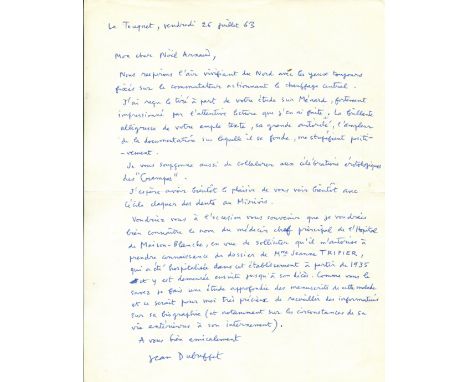 Le Touquet, vendredi 26 juillet 63
Mon cher Noël Arnaud,
Nous respirons l'air vivifiant du Nord avec les yeux toujours
fixés sur le commutateur actionnant le chauffage central.
J'ai reçu le tiré à part de votre étude sur Ménard, fortement
impressionné par l'attentive lecture que j'en ai faite. La brillante
allégresse de votre ample texte, sa grande autorité, l'ampleur
de la documentation sur laquelle il se fonde, me stupéfient positi-
-vement.
Je vous soupçonne aussi de collaborer aux célébrations
des "Crampes".
J'espère avoir bientôt le plaisir de vous voir bientôt avec
Cécile claquer des dents au Mirivis.
Voudriez vous à l'occasion vous souvenir que je voudrais
bien connaître le nom du médecin chef principal de l'Hôpital
de Maison-Blanche, en vue de solliciter qu'il m'autorise à
prendre connaissance du dossier de Mme Jeanne TRIPIER,
qui a été hospitalisée dans cet établissement à partir de 1935
et y est demeurée ensuite jusqu'à son décès. Comme vous le
savez je fais une étude approfondie des manuscrits de cette malade
et ce serait pour moi très précieux de recueillir des informations
sur sa biographie (et notamment sur les circonstances de sa
vie antérieures à son internement).
A vous bien amicalement
Jean Dubuffet